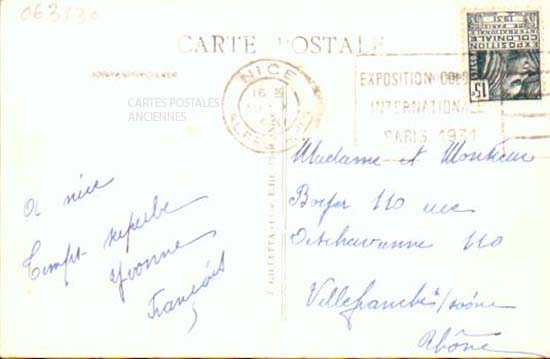 063130
CARTE POSTALE
NICE
16
ALPES
EXPOSITION COLONIALE
INTERNATIONALE
PARIS 1931
EXPOSITION
COLONIALE
INTERNATIONALE
PARIS 1931
POSTES
15c
CARTES POSTALES
ANCIENNES
A nice
Temps superbe
Yvonne
François
Madame et Monsieur
110 rue
110
Villefranche s/ saône
Rhône